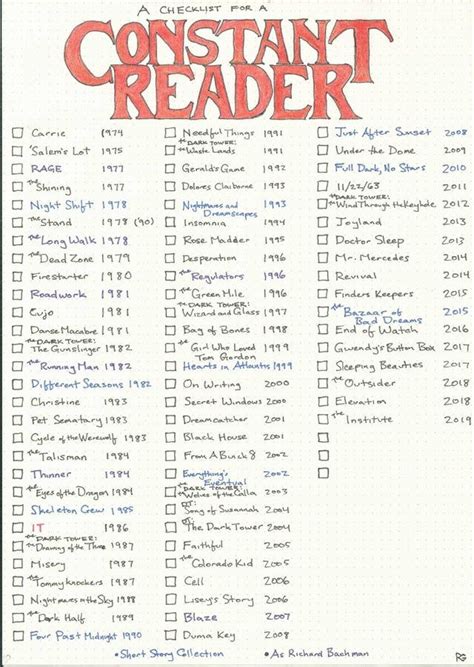 A CHECKLIST FOR A
CONSTANT
READER
Carrie 1974
'Salem's Lot 1975
RAGE 1977
the Shining 1977
Night Shift 1978
the Stand 1978 ('90)
the Long Walk 1978
the Dead Zone 1979
Firestarter 1980
Roadwork 1981
Cujo 1981
Danse Macabre 1981
the DARK TOWER:
The Gunslinger 1982
the Running Man 1982
Different Seasons 1982
Christine 1983
Pet Sematary 1983
Cycle of the Werewolf 1983
the Talisman 1984
Thinner 1984
the Eyes of the Dragon 1984
Skeleton Crew 1985
IT 1986
the DARK TOWER:
the Drawing of the Three 1987
Misery 1987
the Tommyknockers 1987
Nightmares in the Sky 1988
the Dark Half 1989
Four Past Midnight 1990
Needful Things 1991
the DARK TOWER:
the Waste Lands 1991
Gerald's Game 1992
Dolores Claiborne 1993
Nightmares and
Dreamscapes 1993
Insomnia 1994
Rose Madder 1995
Desperation 1996
the Regulators 1996
the Green Mile 1996
the DARK TOWER:
Wizard and Glass 1997
Bag of Bones 1998
the Girl Who Loved 1999
Tom Gordon
Hearts in Atlantis 1999
On Writing 2000
Secret Windows 2000
Dreamcatcher 2001
Black House 2001
From A Buick 8 2002
Everything's
Eventual 2002
the DARK TOWER:
Wolves of the Calla 2003
DT:
Song of Susannah 2004
DT:
The Dark Tower 2004
Faithful 2005
the Colorado Kid 2005
Cell 2006
Lisey's Story 2006
Blaze 2007
Duma Key 2008
Just After Sunset 2008
Under the Dome 2009
Full Dark, No Stars 2010
11/22/63 2011
the DARK TOWER:
Wind Through the Keyhole 2012
Joyland 2013
Doctor Sleep 2013
Mr. Mercedes 2014
Revival 2014
Finders Keepers 2015
the Bazaar of 2015
Bad Dreams
End of Watch 2016
Gwendy's Button Box 2017
Sleeping Beauties 2017
the Outsider 2018
Elevation 2018
the Institute 2019
•Short Story Collection
•As Richard Bachman
RG